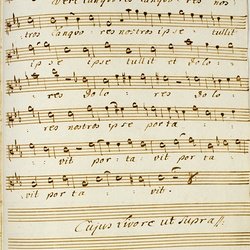 vere languores languo - res nos -
tros languo - res nostros ipse tullit
ipse ipse tullit et dolo -
res dolo - res dolo -
res nostros ipse porta -
vit por - ta - vit por ta
vit por ta - vit.
Cujus livore ut supra //.